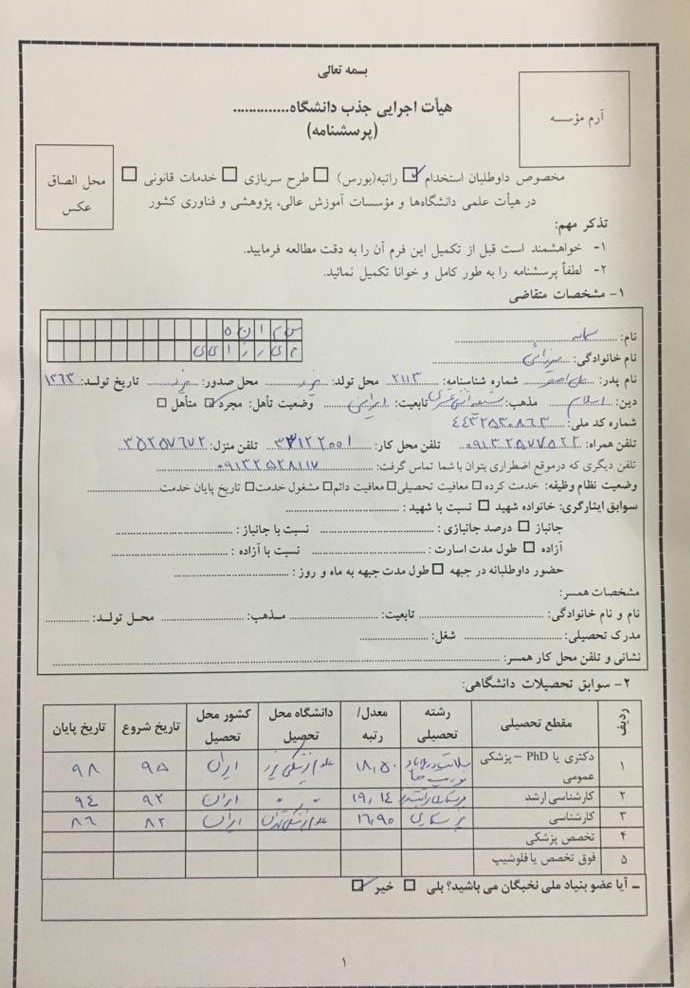 بسمه تعالی
آرم مؤسسه
هیأت اجرایی جذب دانشگاه..............
(پرسشنامه)
محل الصاق
عکس
مخصوص داوطلبان استخدام ☑ راتبه(بورس) ☐ طرح سربازی ☐ خدمات قانونی ☐
در هیأت علمی دانشگاه‌ها و مؤسسات آموزش عالی، پژوهشی و فناوری کشور
تذکر مهم:
۱- خواهشمند است قبل از تکمیل این فرم آن را به دقت مطالعه فرمایید.
۲- لطفاً پرسشنامه را به طور کامل و خوانا تکمیل نمائید.
۱- مشخصات متقاضی
نام: سمانه س م ا ن ه
نام خانوادگی: میرزائی م ی ر ز ا ئ ی
نام پدر: علی اصغر شماره شناسنامه: ۲۱۱۳ محل تولد: یزد محل صدور: یزد تاریخ تولد: ۱۳۶۳
دین: اسلام مذهب: شیعه اثنی عشری تابعیت: ایرانی وضعیت تأهل: مجرد ☑ متأهل ☐
شماره کد ملی: ۴۴۳۲۵۳۰۸۶۳
تلفن همراه: ۰۹۱۳۲۵۷۷۵۲۲ تلفن محل کار: ۳۳۱۲۲۰۰۱ تلفن منزل: ۳۵۲۵۷۶۷۲
تلفن دیگری که درموقع اضطراری بتوان با شما تماس گرفت: ۰۹۱۳۲۵۲۸۱۱۷
وضعیت نظام وظیفه: خدمت کرده ☐ معافیت تحصیلی ☐ معافیت دائم ☐ مشغول خدمت ☐ تاریخ پایان خدمت
سوابق ایثارگری: خانواده شهید ☐ نسبت با شهید :
جانباز ☐ درصد جانبازی : نسبت با جانباز :
آزاده ☐ طول مدت اسارت : نسبت با آزاده :
حضور داوطلبانه در جبهه ☐ طول مدت جبهه به ماه و روز :
مشخصات همسر:
نام و نام خانوادگی: تابعیت: مذهب: محل تولد:
مدرک تحصیلی: شغل:
نشانی و تلفن محل کار همسر:
۲- سوابق تحصیلات دانشگاهی:
ردیف مقطع تحصیلی رشته تحصیلی معدل/رتبه دانشگاه محل تحصیل کشور محل تحصیل تاریخ شروع تاریخ پایان
۱ دکتری یا PhD – پزشکی عمومی ۱۸,۵۰ علوم پزشکی یزد ایران ۹۵ ۹۸
۲ کارشناسی ارشد ۱۹,۱۴ ایران ۹۲ ۹۴
۳ کارشناسی پرستاری ۱۶,۹۵ علوم پزشکی ایران ۸۲ ۸۶
۴ تخصص پزشکی
۵ فوق تخصص یا فلوشیپ
ـ آیا عضو بنیاد ملی نخبگان می باشید؟ بلی ☐ خیر ☑
۱